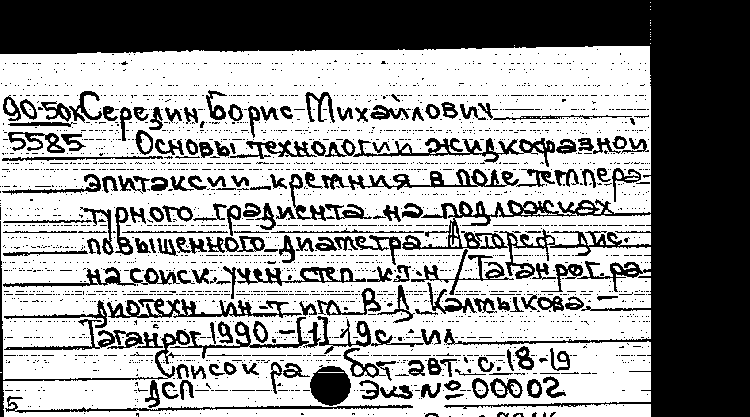 90-50к Середин, Борис Михайлович
5585 Основы технологии жидкофазной
эпитаксии кремния в поле темпера-
турного градиента на подложках
повышенного диаметра: Автореф. дис.
на соиск. учен. степ. к.т.н. / Таганрог. ра-
диотехн. ин-т им. В.Д. Калмыкова. -
Таганрог, 1990. - [1], 19 с.: ил.
Список работ авт.: с. 18-19
ДСП Экз № 00002
5